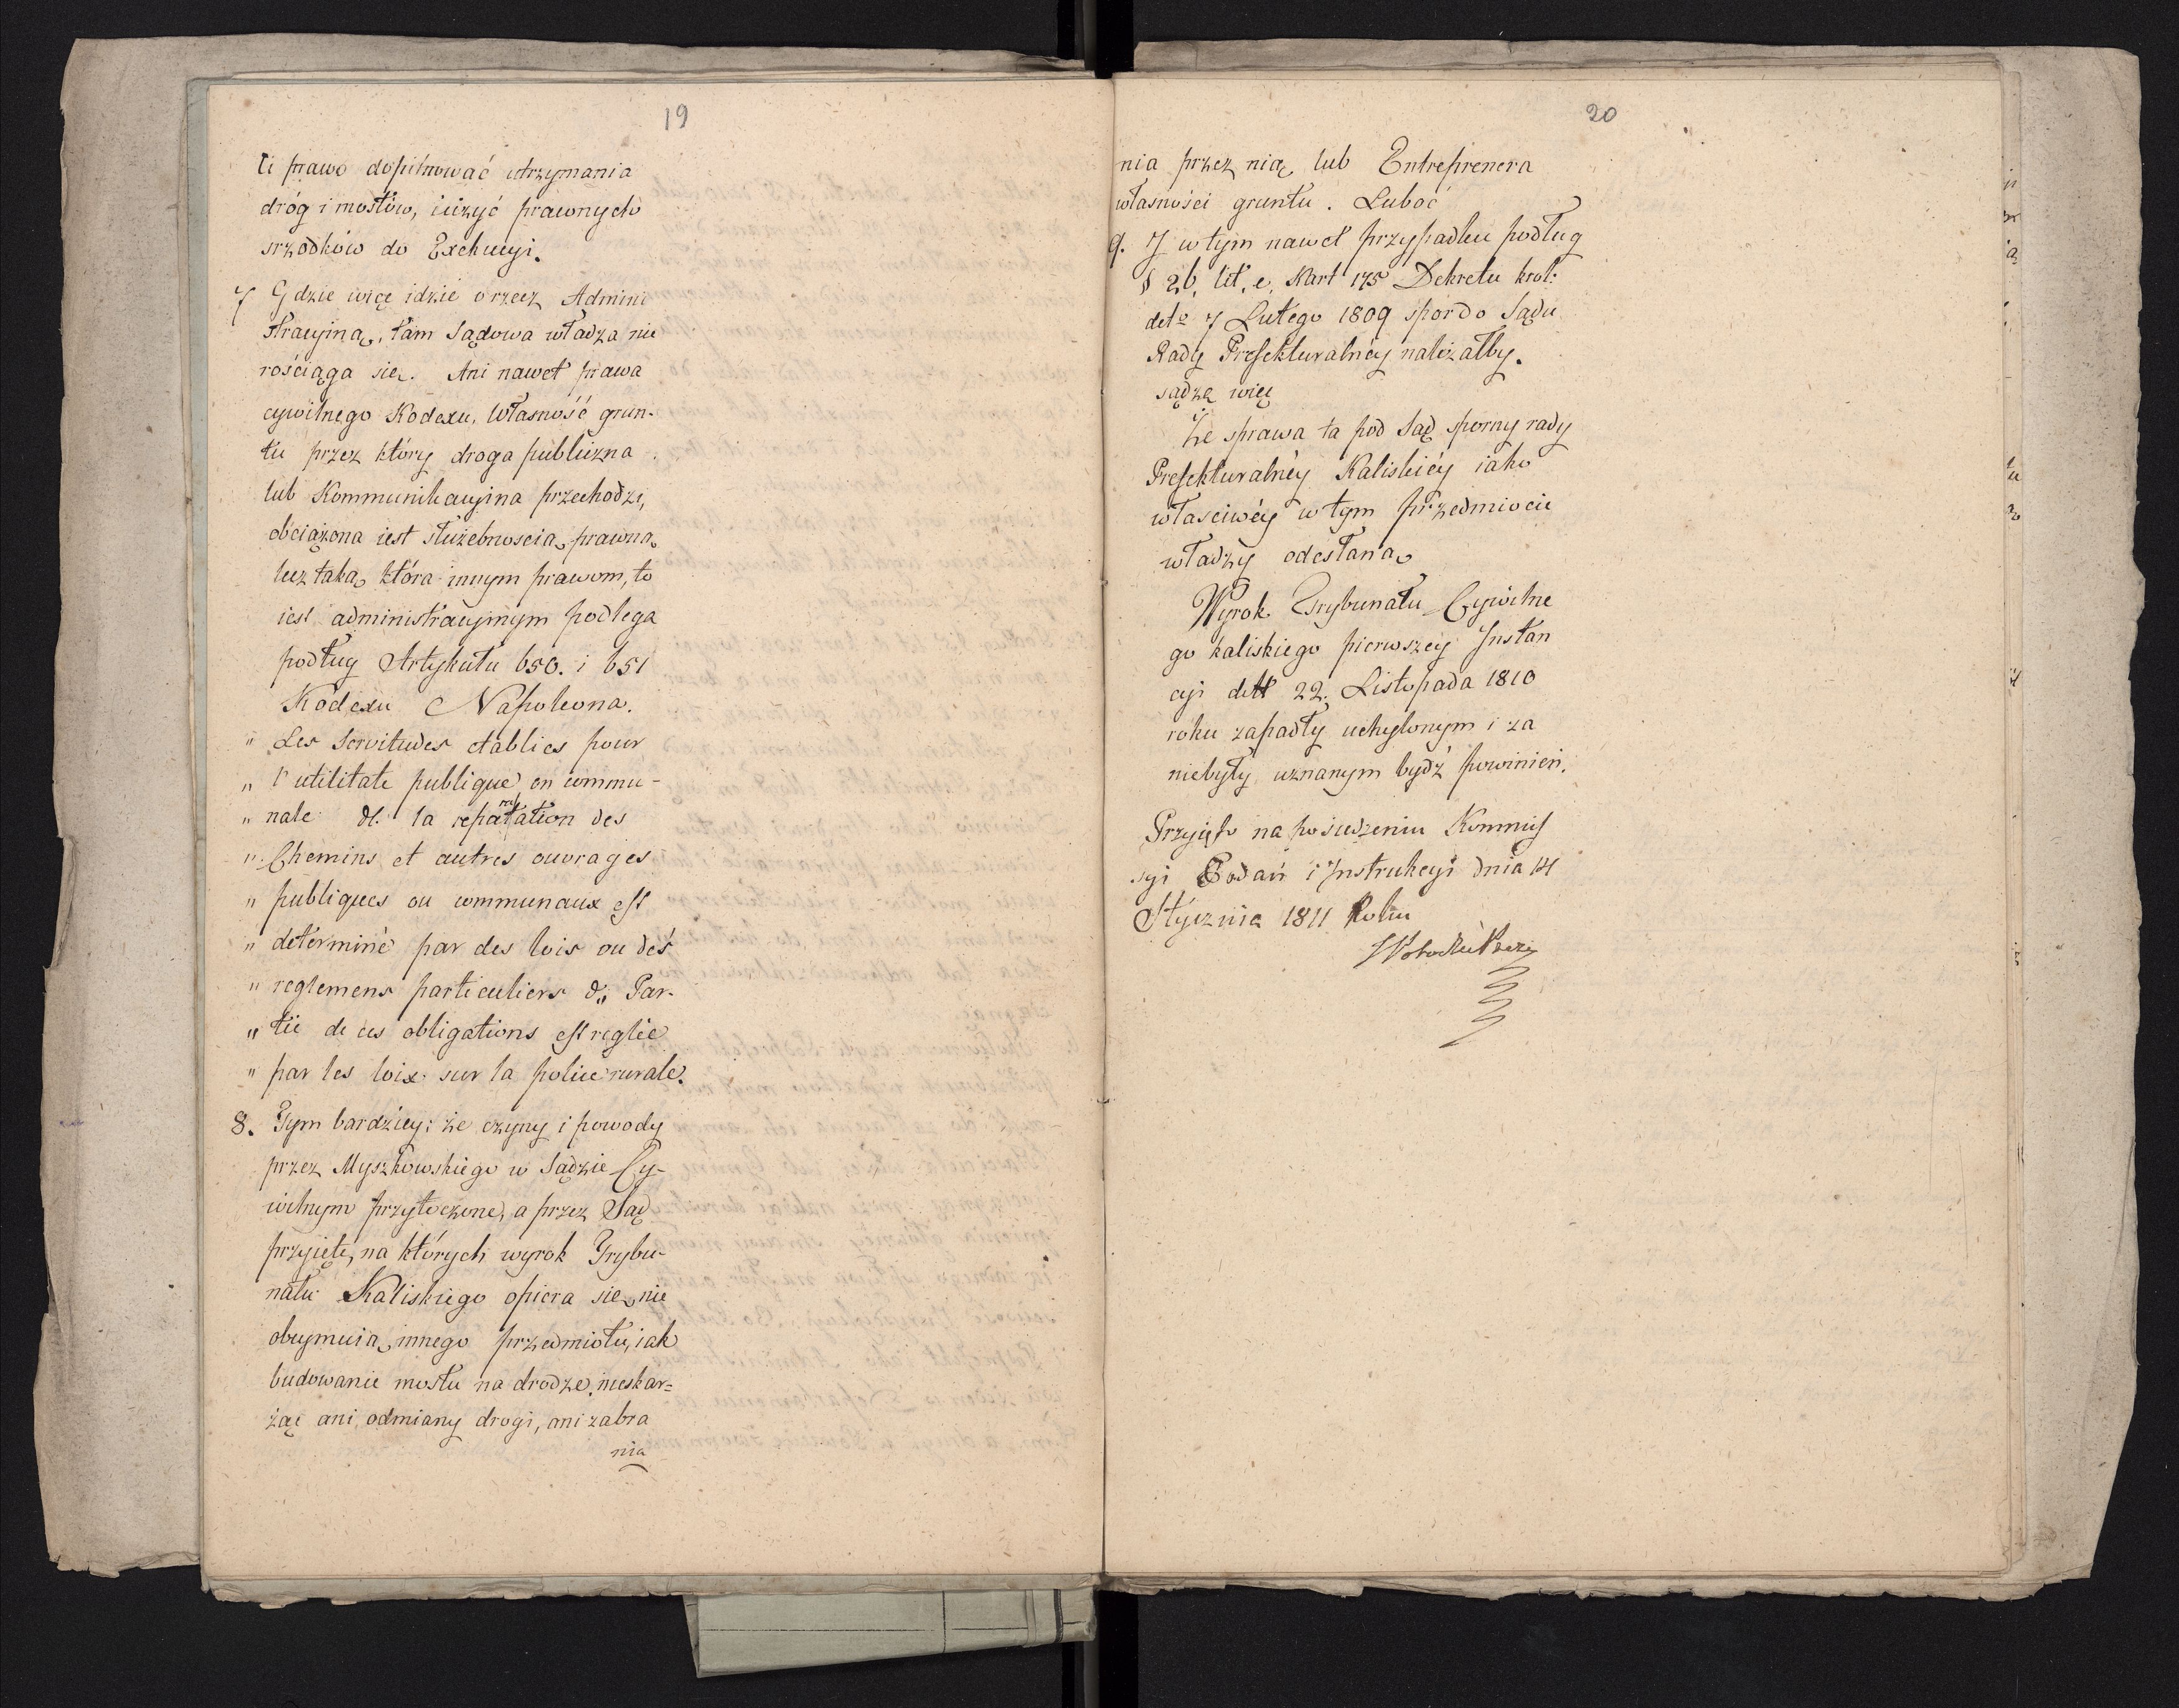 19
li prawo dopilnować utrzymania
dróg i mostów, i użyć prawnych
srzodków do Exekucyi.
7 Gdzie więc idzie o rzecz Admini
stracyiną, tam Sądowa władza nie
rościąga się. Ani nawet prawa
cywilnego Kodexu, Własność grun-
tu przez który droga publiczna
lub Kommunikacyina przechodzi,
obciążona iest służebnoscią prawną
lecz taką która innym prawom, to
iest administracyinym podlega
podług Artykułu 650. i 651
Kodexu Napoleona.
" Les Servitudes etablies pour
" l'utilitate publique, on commu-
" nale de la reparation des
" Chemins et autres ouvrages
" publiques ou communaux est
" determiné par des lois ou des
" reglemens particuliers d,, Par-
" tie de ces obligations est reglée
" par les loix sur la police rurale.
8. Tym bardziey: że czyny i powody
przez Myszkowskiego w Sądzie Cy-
wilnym przytoczone, a przez Sąd
przyięte, na których wyrok Trybu-
nału Kaliskiego opiera się, nie
obeymuią innego przedmiotu, iak
budowanie mostu na drodze, nieskar=
żąc ani odmiany drogi, ani zabra
nia
20
nia przez nią lub Entreprenera
własności gruntu. Luboć
9. I w tym nawet przypadku podług
§ 26. lit. e. Kart 175 Dekretu król:
detō 7 Lutego 1809 spór do Sądu
Rady Prefekturalnéy należałby.
sądzę więc
Że sprawa ta pod Sąd sporny rady
Prefekturalnéy Kaliskiéy iako
właściwéy w tym przedmiocie
władzy odesłaną
Wyrok Trybunału Cywilne
go kaliskiego pierwszey Instan
cyi dett 22. Listopada 1810
roku zapadły uchylonym i za
niebyły uznanym bydź powinien.
Przyięto na posiedzeniu Kommis
syi Podań i Instrukcyi dnia 14
Stycznia 1811 Roku